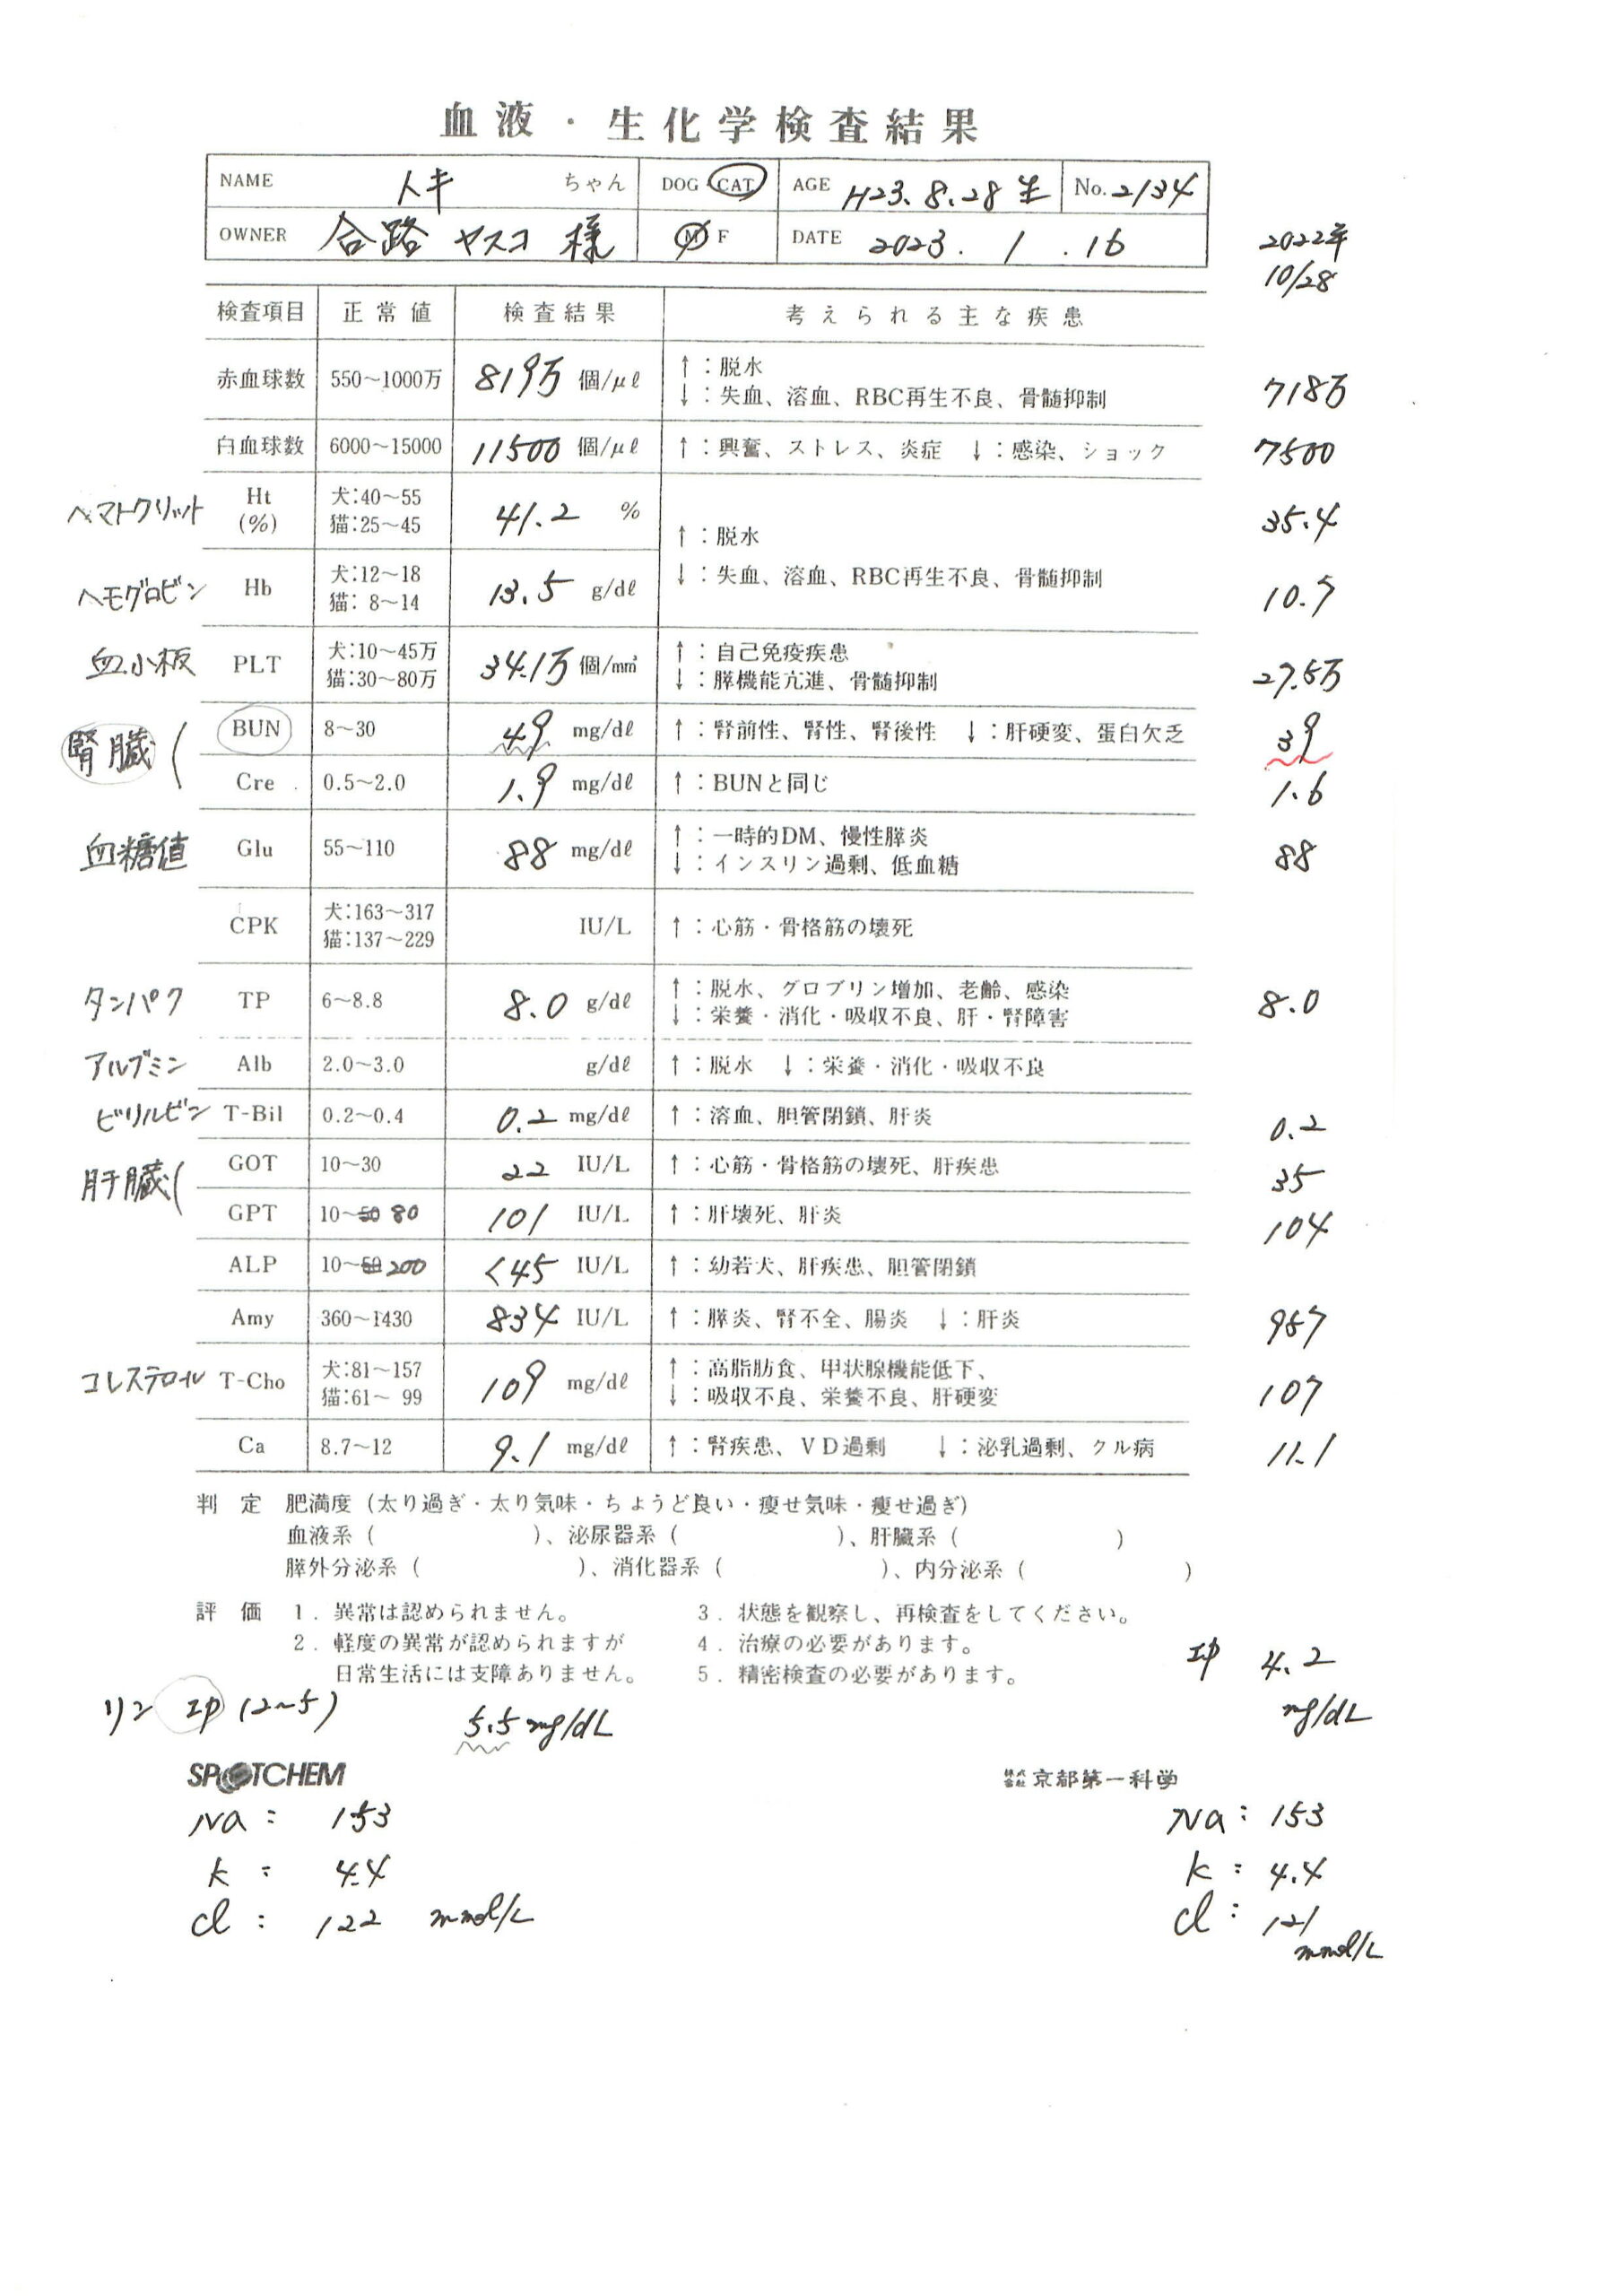 血液・生化学検査結果
NAME トキ ちゃん DOG CAT AGE H23.8.28生 No. 2134
OWNER 合路 ヤスコ 様 M F DATE 2023. 1 .16
2022年
10/28
検査項目 正常値 検査結果 考えられる主な疾患
赤血球数 550〜1000万 819万 個/μℓ ↑：脱水 718万
↓：失血、溶血、RBC再生不良、骨髄抑制
白血球数 6000〜15000 11500 個/μℓ ↑：興奮、ストレス、炎症 ↓：感染、ショック 7500
ヘマトクリット Ht (%) 犬:40〜55 猫:25〜45 41.2 % 35.4
↑：脱水
↓：失血、溶血、RBC再生不良、骨髄抑制
ヘモグロビン Hb 犬:12〜18 猫: 8〜14 13.5 g/dℓ 10.7
血小板 PLT 犬:10〜45万 猫:30〜80万 34.1万 個/m㎡ ↑：自己免疫疾患 27.5万
↓：脾機能亢進、骨髄抑制
腎臓 BUN 8〜30 49 mg/dℓ ↑：腎前性、腎性、腎後性 ↓：肝硬変、蛋白欠乏 39
Cre 0.5〜2.0 1.9 mg/dℓ ↑：BUNと同じ 1.6
血糖値 Glu 55〜110 88 mg/dℓ ↑：一時的DM、慢性膵炎 88
↓：インスリン過剰、低血糖
CPK 犬:163〜317 猫:137〜229 IU/L ↑：心筋・骨格筋の壊死
タンパク TP 6〜8.8 8.0 g/dℓ ↑：脱水、グロブリン増加、老齢、感染 8.0
↓：栄養・消化・吸収不良、肝・腎障害
アルブミン Alb 2.0〜3.0 g/dℓ ↑：脱水 ↓：栄養・消化・吸収不良
ビリルビン T-Bil 0.2〜0.4 0.2 mg/dℓ ↑：溶血、胆管閉鎖、肝炎 0.2
肝臓 GOT 10〜30 22 IU/L ↑：心筋・骨格筋の壊死、肝疾患 35
GPT 10〜50 80 101 IU/L ↑：肝壊死、肝炎 104
ALP 10〜50 200 <45 IU/L ↑：幼若犬、肝疾患、胆管閉鎖
Amy 360〜1430 834 IU/L ↑：膵炎、腎不全、腸炎 ↓：肝炎 987
コレステロール T-Cho 犬:81〜157 猫:61〜 99 109 mg/dℓ ↑：高脂肪食、甲状腺機能低下、 107
↓：吸収不良、栄養不良、肝硬変
Ca 8.7〜12 9.1 mg/dℓ ↑：腎疾患、VD過剰 ↓：泌乳過剰、クル病 11.1
判定 肥満度（太り過ぎ・太り気味・ちょうど良い・痩せ気味・痩せ過ぎ）
血液系（ ）、泌尿器系（ ）、肝臓系（ ）
膵外分泌系（ ）、消化器系（ ）、内分泌系（ ）
評価 1．異常は認められません。 3．状態を観察し、再検査をしてください。
2．軽度の異常が認められますが 4．治療の必要があります。
日常生活には支障ありません。 5．精密検査の必要があります。
IP 4.2 mg/dL
リン IP (2〜5) 5.5 mg/dL
SPOTCHEM 株式会社 京都第一科学
Na : 153 Na : 153
K : 4.4 K : 4.4
Cl : 122 mmol/L Cl : 121 mmol/L